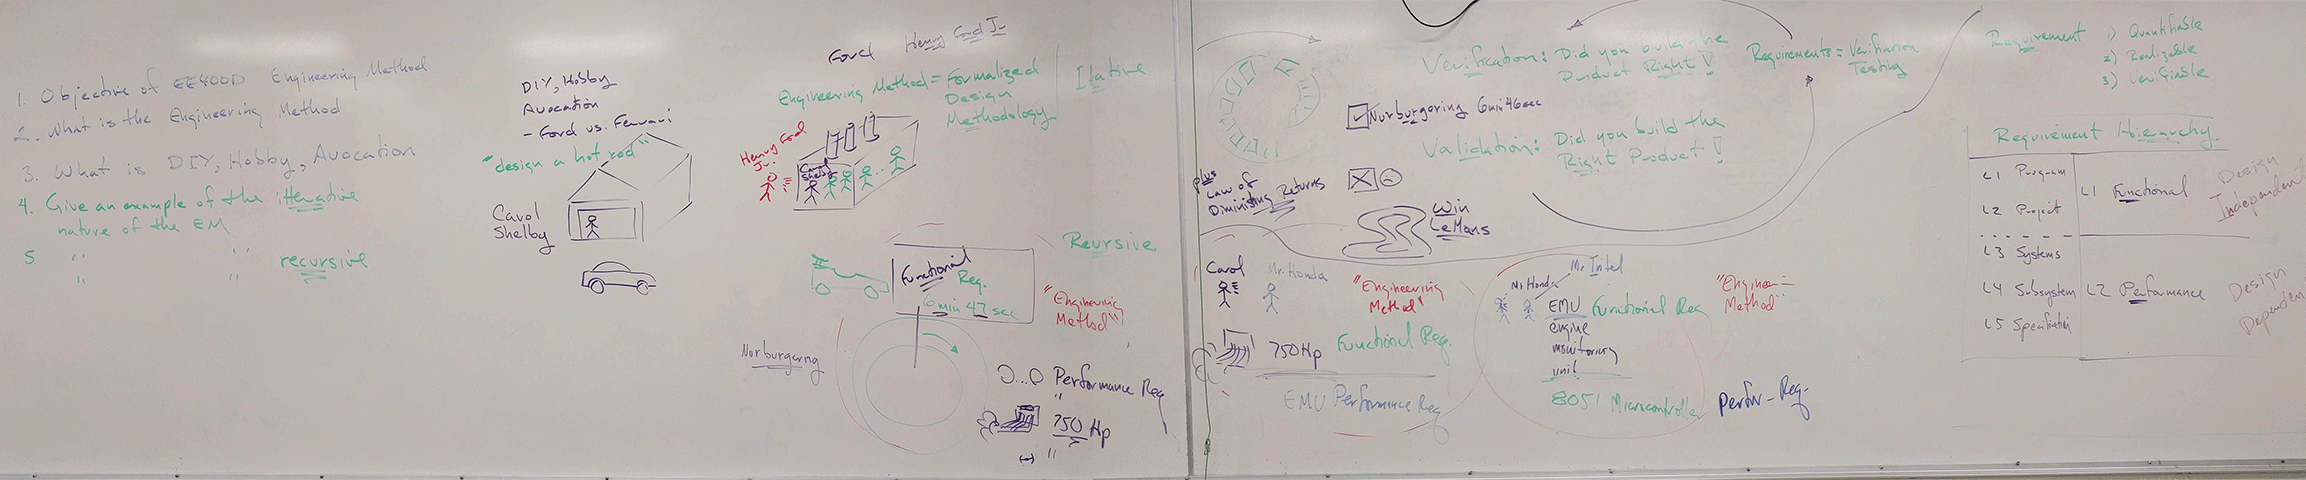 1. Objective of EE400D Engineering Method
2. What is the Engineering Method
3. What is DIY, Hobby, Avocation
4. Give an example of the itterative
nature of the EM
5. " " recursive
" "
DIY, Hobby
Avocation
- Ford vs. Ferrari
"design a hot rod"
Carol
Shelby
Ford Henry Ford Jr
Engineering Method = Formalized
Design
Methodology
Itative
Henry Ford
Jr.
Carol
Shelby
Reursive
Functional
Req.
6 min 47 sec
"Engineering
Method"
Nurburgring
... Performance Req
"
750 Hp
"
plus
Law of
Diministing Returns
Verification: Did you build the
Product Right!
Nurburgoring 6min 46sec
Validation: Did you build the
Right Product!
Win
LeMans
Requirements = Verification
Testing
Carol Mr. Honda
"Engineering
Method"
750Hp Functional Req.
EMU Performance Req
Mr. Intel
Mr Honda
EMU Functional Req
engine
monitoring
unit
8051 Microcontroller Perfor-Req.
"Engineer-
Method"
Requirement 1) Quantifiable
2) Realizable
3) Verifiable
Requirement Hierarchy
L1 Program
L2 Project
L3 Systems
L4 Subsystem
L5 Specifiation
L1 Functional
L2 Performance
Design
Independent
Design
Dependen